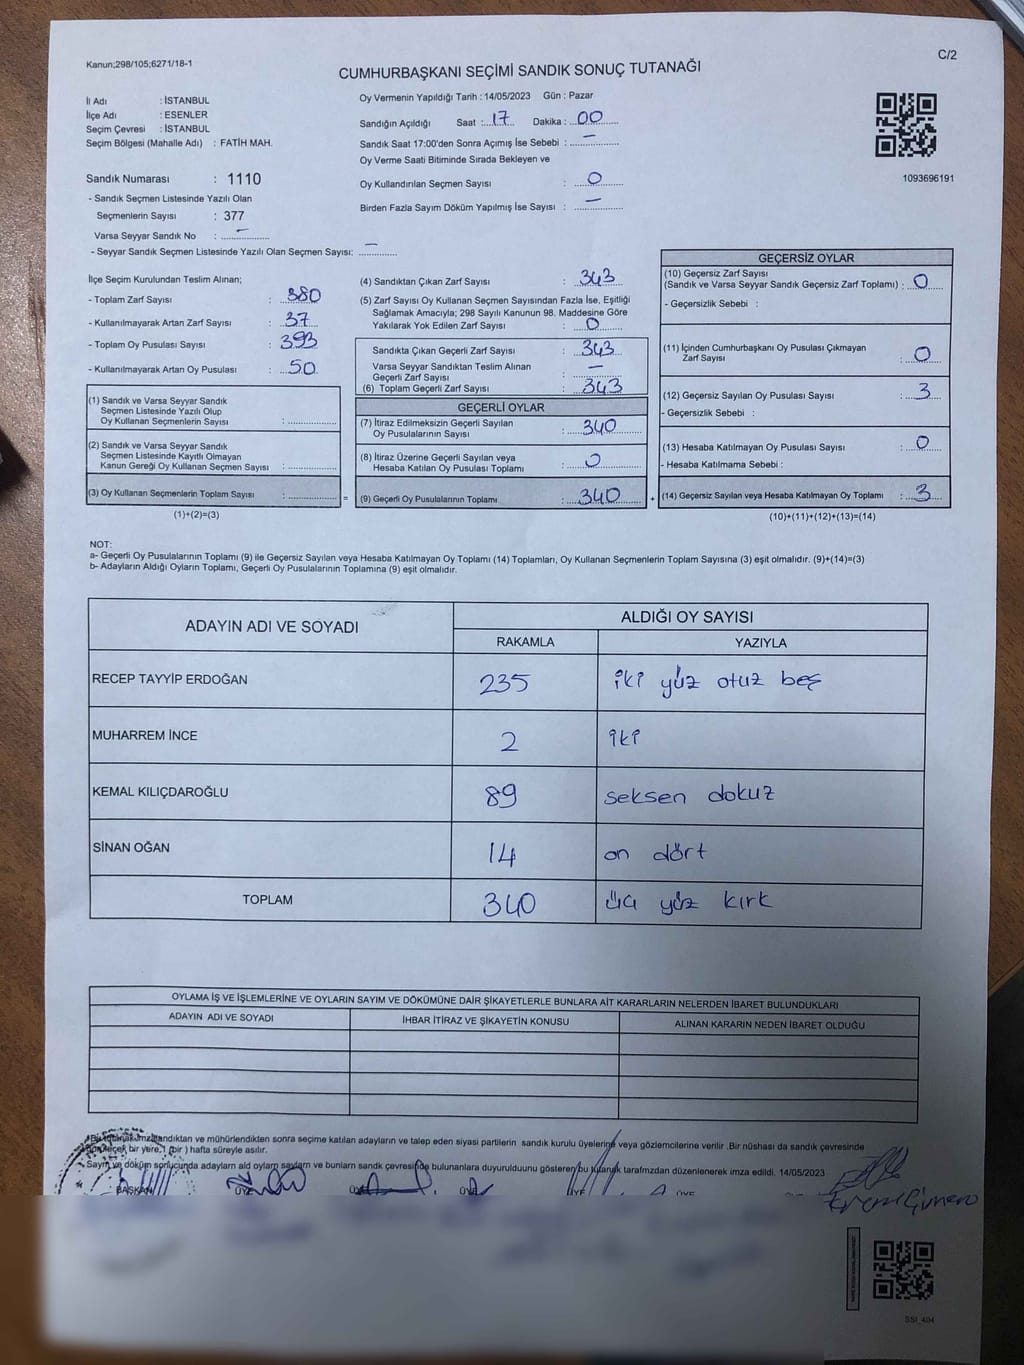 Kanun;298/105;6271/18-1
C/2
CUMHURBAŞKANI SEÇİMİ SANDIK SONUÇ TUTANAĞI
İl Adı : İSTANBUL
İlçe Adı : ESENLER
Seçim Çevresi : İSTANBUL
Seçim Bölgesi (Mahalle Adı) : FATİH MAH.
Sandık Numarası : 1110
- Sandık Seçmen Listesinde Yazılı Olan
Seçmenlerin Sayısı : 377
Varsa Seyyar Sandık No : –
- Seyyar Sandık Seçmen Listesinde Yazılı Olan Seçmen Sayısı: –
Oy Vermenin Yapıldığı Tarih : 14/05/2023 Gün : Pazar
Sandığın Açıldığı Saat : 17 Dakika : 00
Sandık Saat 17:00'den Sonra Açımış İse Sebebi : –
Oy Verme Saati Bitiminde Sırada Bekleyen ve
Oy Kullandırılan Seçmen Sayısı : 0
Birden Fazla Sayım Döküm Yapılmış İse Sayısı : –
1093696191
İlçe Seçim Kurulundan Teslim Alınan;
- Toplam Zarf Sayısı : 380
- Kullanılmayarak Artan Zarf Sayısı : 37
- Toplam Oy Pusulası Sayısı : 393
- Kullanılmayarak Artan Oy Pusulası : 50
(1) Sandık ve Varsa Seyyar Sandık
Seçmen Listesinde Yazılı Olup
Oy Kullanan Seçmenlerin Sayısı :
(2) Sandık ve Varsa Seyyar Sandık
Seçmen Listesinde Kayıtlı Olmayan
Kanun Gereği Oy Kullanan Seçmen Sayısı :
(3) Oy Kullanan Seçmenlerin Toplam Sayısı : =
(1)+(2)=(3)
(4) Sandıktan Çıkan Zarf Sayısı : 343
(5) Zarf Sayısı Oy Kullanan Seçmen Sayısından Fazla İse, Eşitliği
Sağlamak Amacıyla; 298 Sayılı Kanunun 98. Maddesine Göre
Yakılarak Yok Edilen Zarf Sayısı : 0
Sandıkta Çıkan Geçerli Zarf Sayısı : 343
Varsa Seyyar Sandıktan Teslim Alınan
Geçerli Zarf Sayısı : –
(6) Toplam Geçerli Zarf Sayısı : 343
GEÇERLİ OYLAR
(7) İtiraz Edilmeksizin Geçerli Sayılan
Oy Pusulalarının Sayısı : 340
(8) İtiraz Üzerine Geçerli Sayılan veya
Hesaba Katılan Oy Pusulası Toplamı : 0
(9) Geçerli Oy Pusulalarının Toplamı : 340 +
GEÇERSİZ OYLAR
(10) Geçersiz Zarf Sayısı
(Sandık ve Varsa Seyyar Sandık Geçersiz Zarf Toplamı) : 0
- Geçersizlik Sebebi :
(11) İçinden Cumhurbaşkanı Oy Pusulası Çıkmayan
Zarf Sayısı : 0
(12) Geçersiz Sayılan Oy Pusulası Sayısı : 3
- Geçersizlik Sebebi :
(13) Hesaba Katılmayan Oy Pusulası Sayısı : 0
- Hesaba Katılmama Sebebi :
(14) Geçersiz Sayılan veya Hesaba Katılmayan Oy Toplamı : 3
(10)+(11)+(12)+(13)=(14)
NOT:
a- Geçerli Oy Pusulalarının Toplamı (9) ile Geçersiz Sayılan veya Hesaba Katılmayan Oy Toplamı (14) Toplamları, Oy Kullanan Seçmenlerin Toplam Sayısına (3) eşit olmalıdır. (9)+(14)=(3)
b- Adayların Aldığı Oyların Toplamı, Geçerli Oy Pusulalarının Toplamına (9) eşit olmalıdır.
ADAYIN ADI VE SOYADI ALDIĞI OY SAYISI
RAKAMLA YAZIYLA
RECEP TAYYİP ERDOĞAN 235 iki yüz otuz beş
MUHARREM İNCE 2 iki
KEMAL KILIÇDAROĞLU 89 seksen dokuz
SİNAN OĞAN 14 on dört
TOPLAM 340 üç yüz kırk
OYLAMA İŞ VE İŞLEMLERİNE VE OYLARIN SAYIM VE DÖKÜMÜNE DAİR ŞİKAYETLERLE BUNLARA AİT KARARLARIN NELERDEN İBARET BULUNDUKLARI
ADAYIN ADI VE SOYADI İHBAR İTİRAZ VE ŞİKAYETİN KONUSU ALINAN KARARIN NEDEN İBARET OLDUĞU
sandıktan ve mühürlendikten sonra seçime katılan adayların ve talep eden siyasi partilerin sandık kurulu üyelerine veya gözlemcilerine verilir .Bir nüshası da sandık çevresinde
bir yere,1 (bir ) hafta süreyle asılır.
Sayım ve döküm sonucunda adayların ald oyların sayların ve bunların sandık çevresinde bulunanlara duyurulduunu gösteren bu tutanak tarafmzdan düzenlenerek imza edildi. 14/05/2023
BAŞKAN ÜYE ÜYE ÜYE ÜYE ÜYE
SSI_404